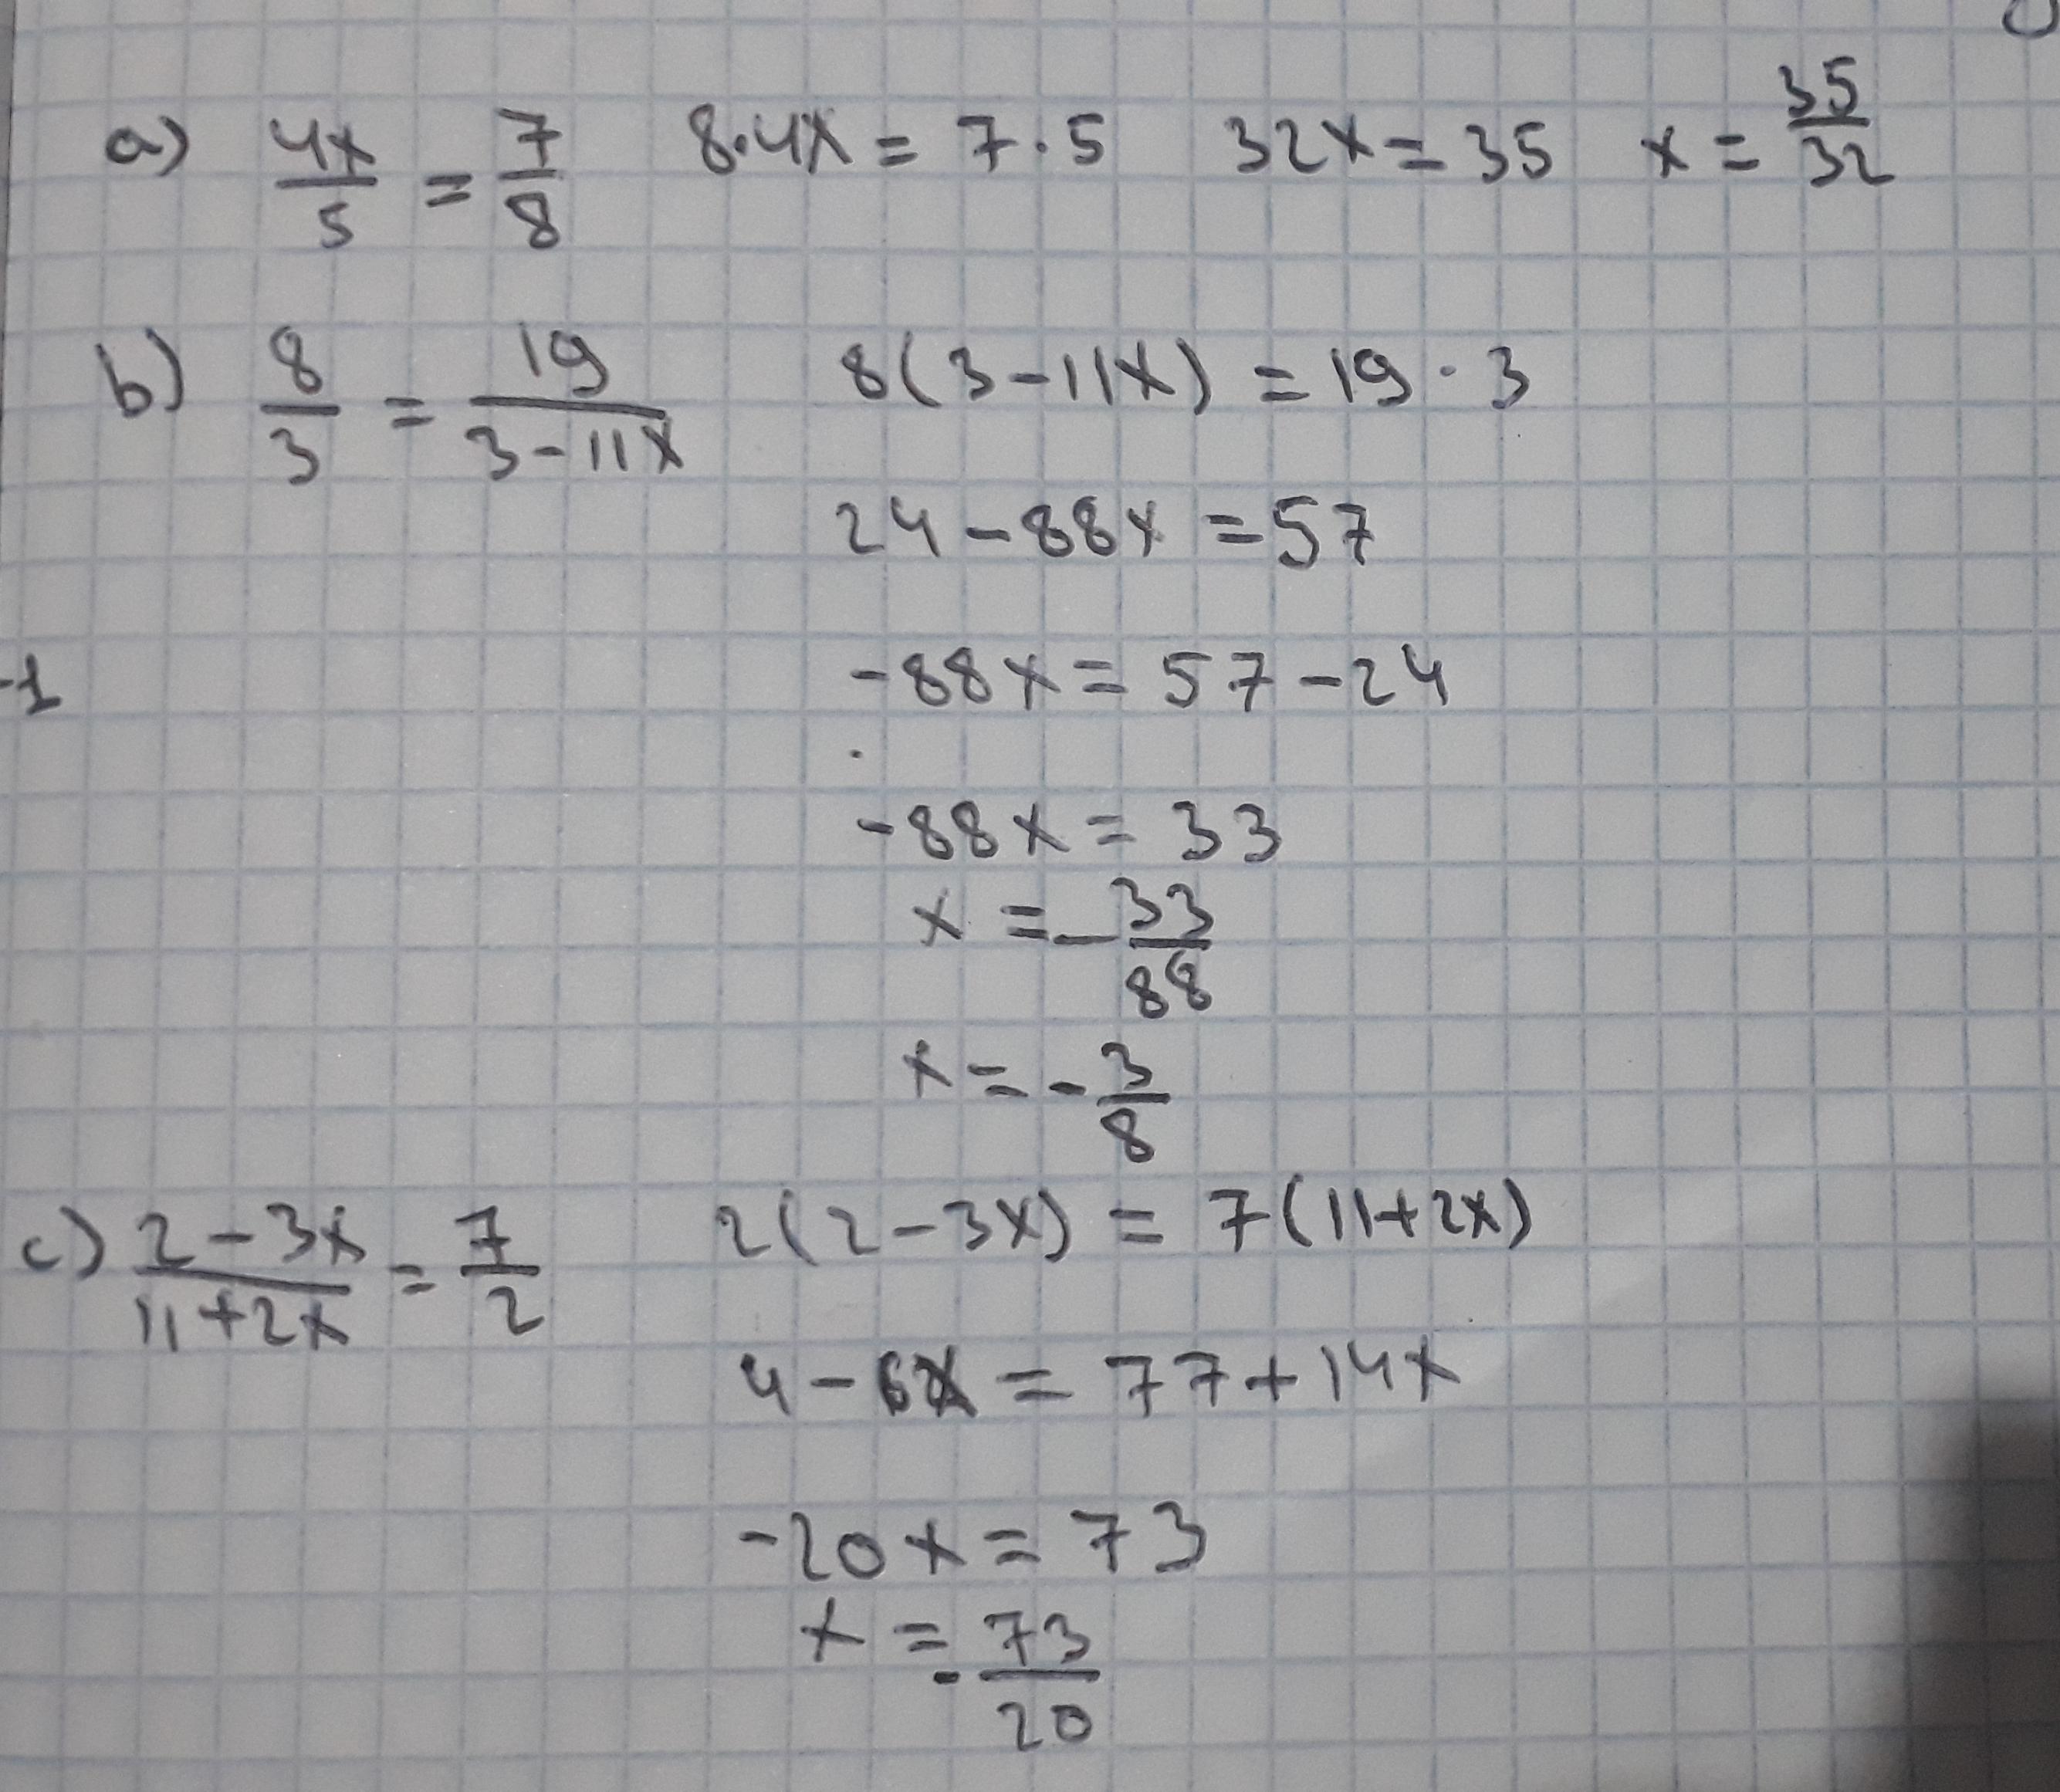 a) 4x/5 = 7/8 8·4x = 7·5 32x = 35 x = 35/32
b) 8/3 = 19/(3-11x) 8(3-11x) = 19·3
24-88x = 57
-1 -88x = 57-24
-88x = 33
x = -33/88
x = -3/8
c) (2-3x)/(11+2x) = 7/2 2(2-3x) = 7(11+2x)
4-6x = 77+14x
-20x = 73
x = -73/20